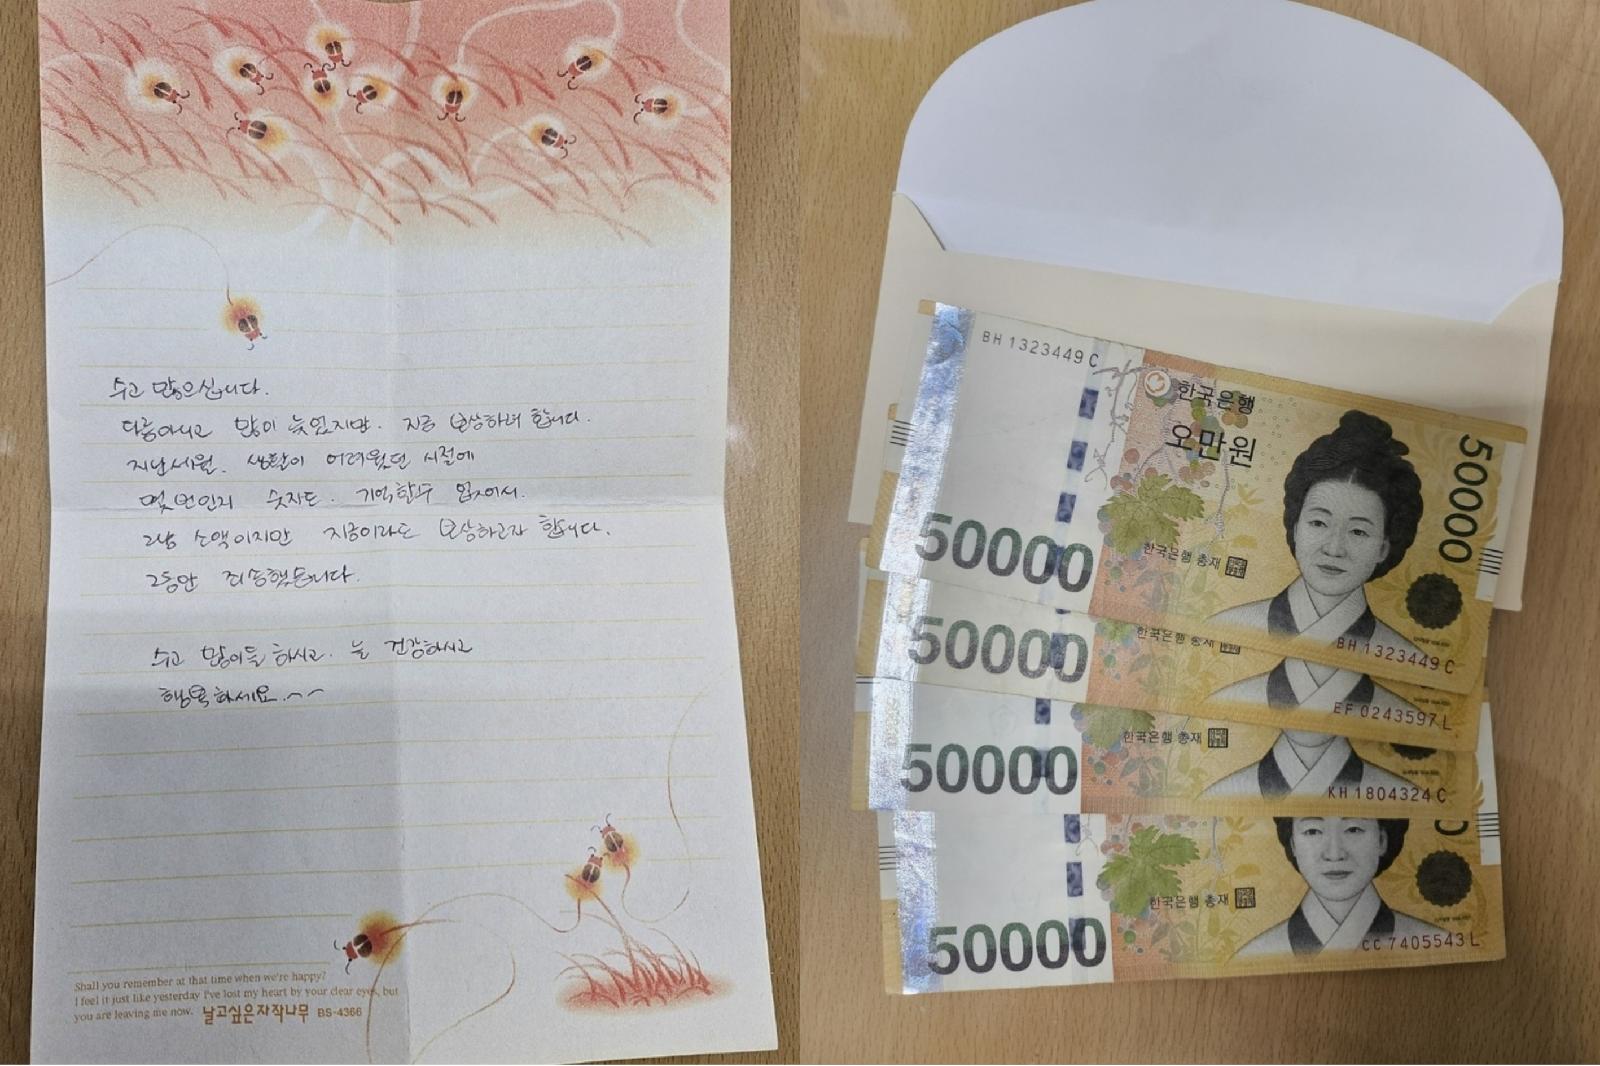 수고 많으십니다.
다름아니고 많이 늦었지만. 지금 보상하려 합니다.
지난세월. 생활이 어려웠던 시절에
몇번인지 숫자도. 기억할수 없어서.
그냥 소액이지만 지금이라도 보상하고자 합니다.
그동안 죄송했습니다.
수고 많이들 하시고. 늘 건강하시고
행복하세요.~~
Shall you remember at that time when we're happy?
I feel it just like yesterday I've lost my heart by your clear eyes, but
you are leaving me now. 날고싶은자작나무 BS-4366
BH 1323449 C
한국은행
오만원
50000
한국은행 총재
50000
BH 1323449 C
50000
한국은행 총재
EF 0243597 L
50000
한국은행 총재
KH 1804324 C
50000
한국은행 총재
CC 7405543 L